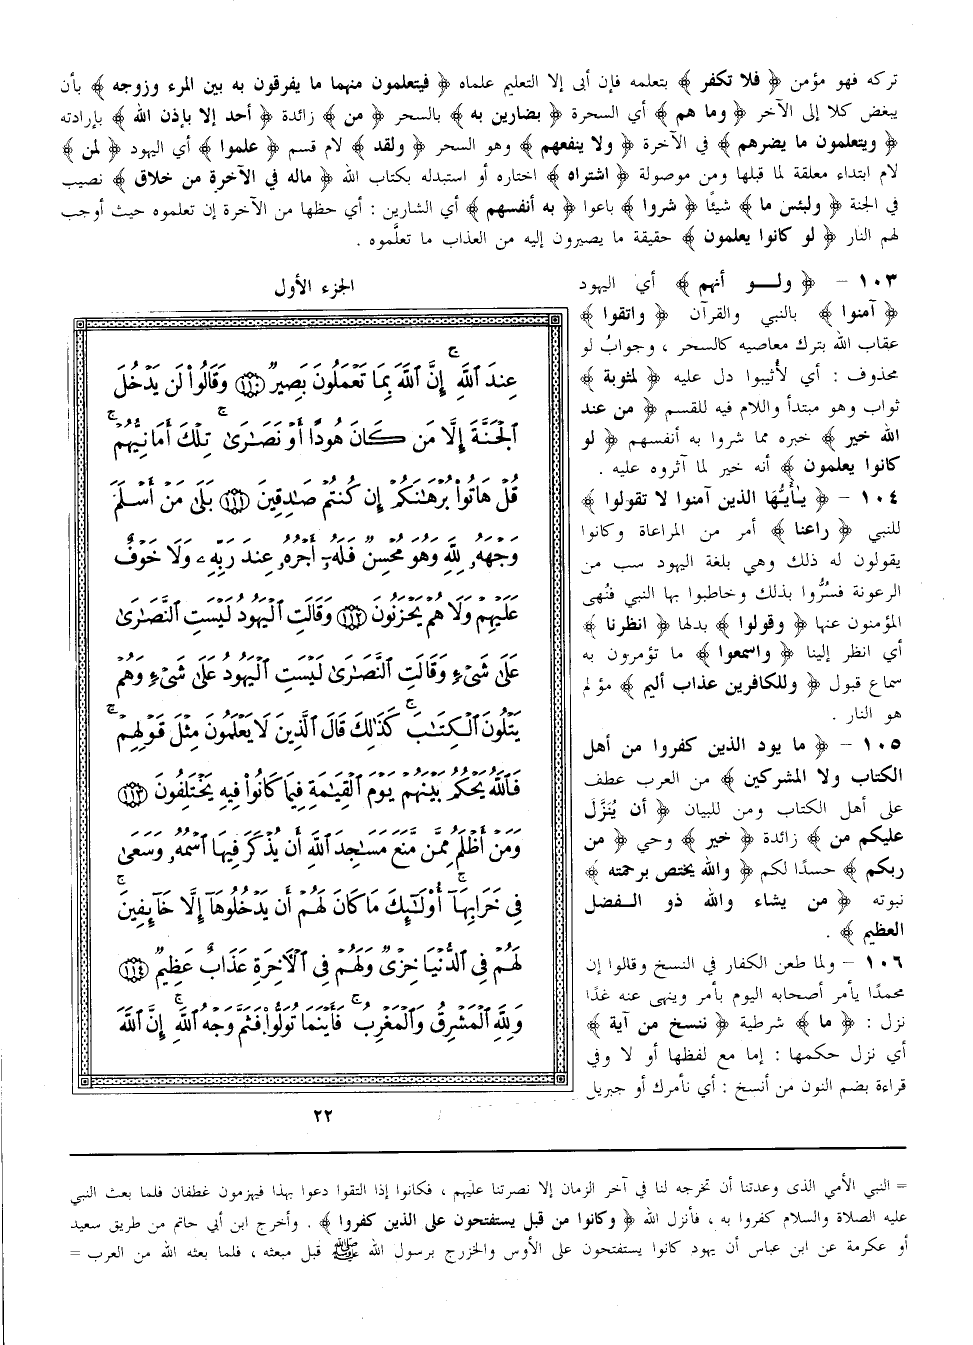 تركه فهو مؤمن ﴿ فلا تكفر ﴾ بتعلمه فإن أبى إلا التعليم علماه ﴿ فيتعلمون منهما ما يفرقون به بين المرء وزوجه ﴾ بأن
يبغض كلا إلى الآخر ﴿ وما هم ﴾ أي السحرة ﴿ بضارين به ﴾ بالسحر ﴿ من ﴾ زائدة ﴿ أحد إلا بإذن الله ﴾ بإرادته
﴿ ويتعلمون ما يضرهم ﴾ في الآخرة ﴿ ولا ينفعهم ﴾ وهو السحر ﴿ ولقد ﴾ لام قسم ﴿ علموا ﴾ أي اليهود ﴿ لمن ﴾
لام ابتداء معلقة لما قبلها ومن موصولة ﴿ اشتراه ﴾ اختاره أو استبدله بكتاب الله ﴿ ماله في الآخرة من خلاق ﴾ نصيب
في الجنة ﴿ ولبئس ما ﴾ شيئًا ﴿ شروا ﴾ باعوا ﴿ به أنفسهم ﴾ أي الشارين : أي حظها من الآخرة إن تعلموه حيث أوجب
لهم النار ﴿ لو كانوا يعلمون ﴾ حقيقة ما يصيرون إليه من العذاب ما تعلَّموه .
١٠٣ – ﴿ ولو أنهم ﴾ أي اليهود
﴿ آمنوا ﴾ بالنبي والقرآن ﴿ واتقوا ﴾
عقاب الله بترك معاصيه كالسحر ، وجوابُ لو
محذوف : أي لأُثيبوا دل عليه ﴿ لمثوبة ﴾
ثواب وهو مبتدأ واللام فيه للقسم ﴿ من عند
الله خير ﴾ خبره مما شروا به أنفسهم ﴿ لو
كانوا يعلمون ﴾ أنه خير لما آثروه عليه .
١٠٤ – ﴿ يأيها الذين آمنوا لا تقولوا ﴾
للنبي ﴿ راعنا ﴾ أمر من المراعاة وكانوا
يقولون له ذلك وهي بلغة اليهود سب من
الرعونة فسُرُّوا بذلك وخاطبوا بها النبي فنُهى
المؤمنون عنها ﴿ وقولوا ﴾ بدلها ﴿ انظرنا ﴾
أي انظر إلينا ﴿ واسمعوا ﴾ ما تؤمرون به
سماع قبول ﴿ وللكافرين عذاب أليم ﴾ مؤلم
هو النار .
١٠٥ – ﴿ ما يود الذين كفروا من أهل
الكتاب ولا المشركين ﴾ من العرب عطف
على أهل الكتاب ومن للبيان ﴿ أن يُنَزَّلَ
عليكم من ﴾ زائدة ﴿ خير ﴾ وحي ﴿ من
ربكم ﴾ حسدًا لكم ﴿ والله يختص برحمته ﴾
نبوته ﴿ من يشاء والله ذو الفضل
العظيم ﴾ .
١٠٦ – ولما طعن الكفار في النسخ وقالوا إن
محمدًا يأمر أصحابه اليوم بأمر وينهى عنه غدًا
نزل : ﴿ ما ﴾ شرطية ﴿ ننسخ من آية ﴾
أي نزل حكمها : إما مع لفظها أو لا وفي
قراءة بضم النون من أنسخ : أي نأمرك أو جبريل
الجزء الأول
عِندَ ٱللَّهِ ۗ إِنَّ ٱللَّهَ بِمَا تَعْمَلُونَ بَصِيرٌ ١١٠ وَقَالُوا۟ لَن يَدْخُلَ
ٱلْجَنَّةَ إِلَّا مَن كَانَ هُودًا أَوْ نَصَـٰرَىٰ ۗ تِلْكَ أَمَانِيُّهُمْ ۗ
قُلْ هَاتُوا۟ بُرْهَـٰنَكُمْ إِن كُنتُمْ صَـٰدِقِينَ ١١١ بَلَىٰ مَنْ أَسْلَمَ
وَجْهَهُۥ لِلَّهِ وَهُوَ مُحْسِنٌ فَلَهُۥٓ أَجْرُهُۥ عِندَ رَبِّهِۦ وَلَا خَوْفٌ
عَلَيْهِمْ وَلَا هُمْ يَحْزَنُونَ ١١٢ وَقَالَتِ ٱلْيَهُودُ لَيْسَتِ ٱلنَّصَـٰرَىٰ
عَلَىٰ شَىْءٍ وَقَالَتِ ٱلنَّصَـٰرَىٰ لَيْسَتِ ٱلْيَهُودُ عَلَىٰ شَىْءٍ وَهُمْ
يَتْلُونَ ٱلْكِتَـٰبَ ۗ كَذَٰلِكَ قَالَ ٱلَّذِينَ لَا يَعْلَمُونَ مِثْلَ قَوْلِهِمْ ۚ
فَٱللَّهُ يَحْكُمُ بَيْنَهُمْ يَوْمَ ٱلْقِيَـٰمَةِ فِيمَا كَانُوا۟ فِيهِ يَخْتَلِفُونَ ١١٣
وَمَنْ أَظْلَمُ مِمَّن مَّنَعَ مَسَـٰجِدَ ٱللَّهِ أَن يُذْكَرَ فِيهَا ٱسْمُهُۥ وَسَعَىٰ
فِى خَرَابِهَآ ۚ أُو۟لَـٰٓئِكَ مَا كَانَ لَهُمْ أَن يَدْخُلُوهَآ إِلَّا خَآئِفِينَ ۚ
لَهُمْ فِى ٱلدُّنْيَا خِزْىٌ وَلَهُمْ فِى ٱلْـَٔاخِرَةِ عَذَابٌ عَظِيمٌ ١١٤
وَلِلَّهِ ٱلْمَشْرِقُ وَٱلْمَغْرِبُ ۚ فَأَيْنَمَا تُوَلُّوا۟ فَثَمَّ وَجْهُ ٱللَّهِ ۚ إِنَّ ٱللَّهَ
٢٢
= النبي الأمي الذى وعدتنا أن تخرجه لنا في آخر الزمان إلا نصرتنا عليهم ، فكانوا إذا التقوا دعوا بهذا فيهزمون غطفان فلما بعث النبي
عليه الصلاة والسلام كفروا به ، فأنزل الله ﴿ وكانوا من قبل يستفتحون على الذين كفروا ﴾ . وأخرج ابن أبي حاتم من طريق سعيد
أو عكرمة عن ابن عباس أن يهود كانوا يستفتحون على الأوس والخزرج برسول الله ﷺ قبل مبعثه ، فلما بعثه الله من العرب =